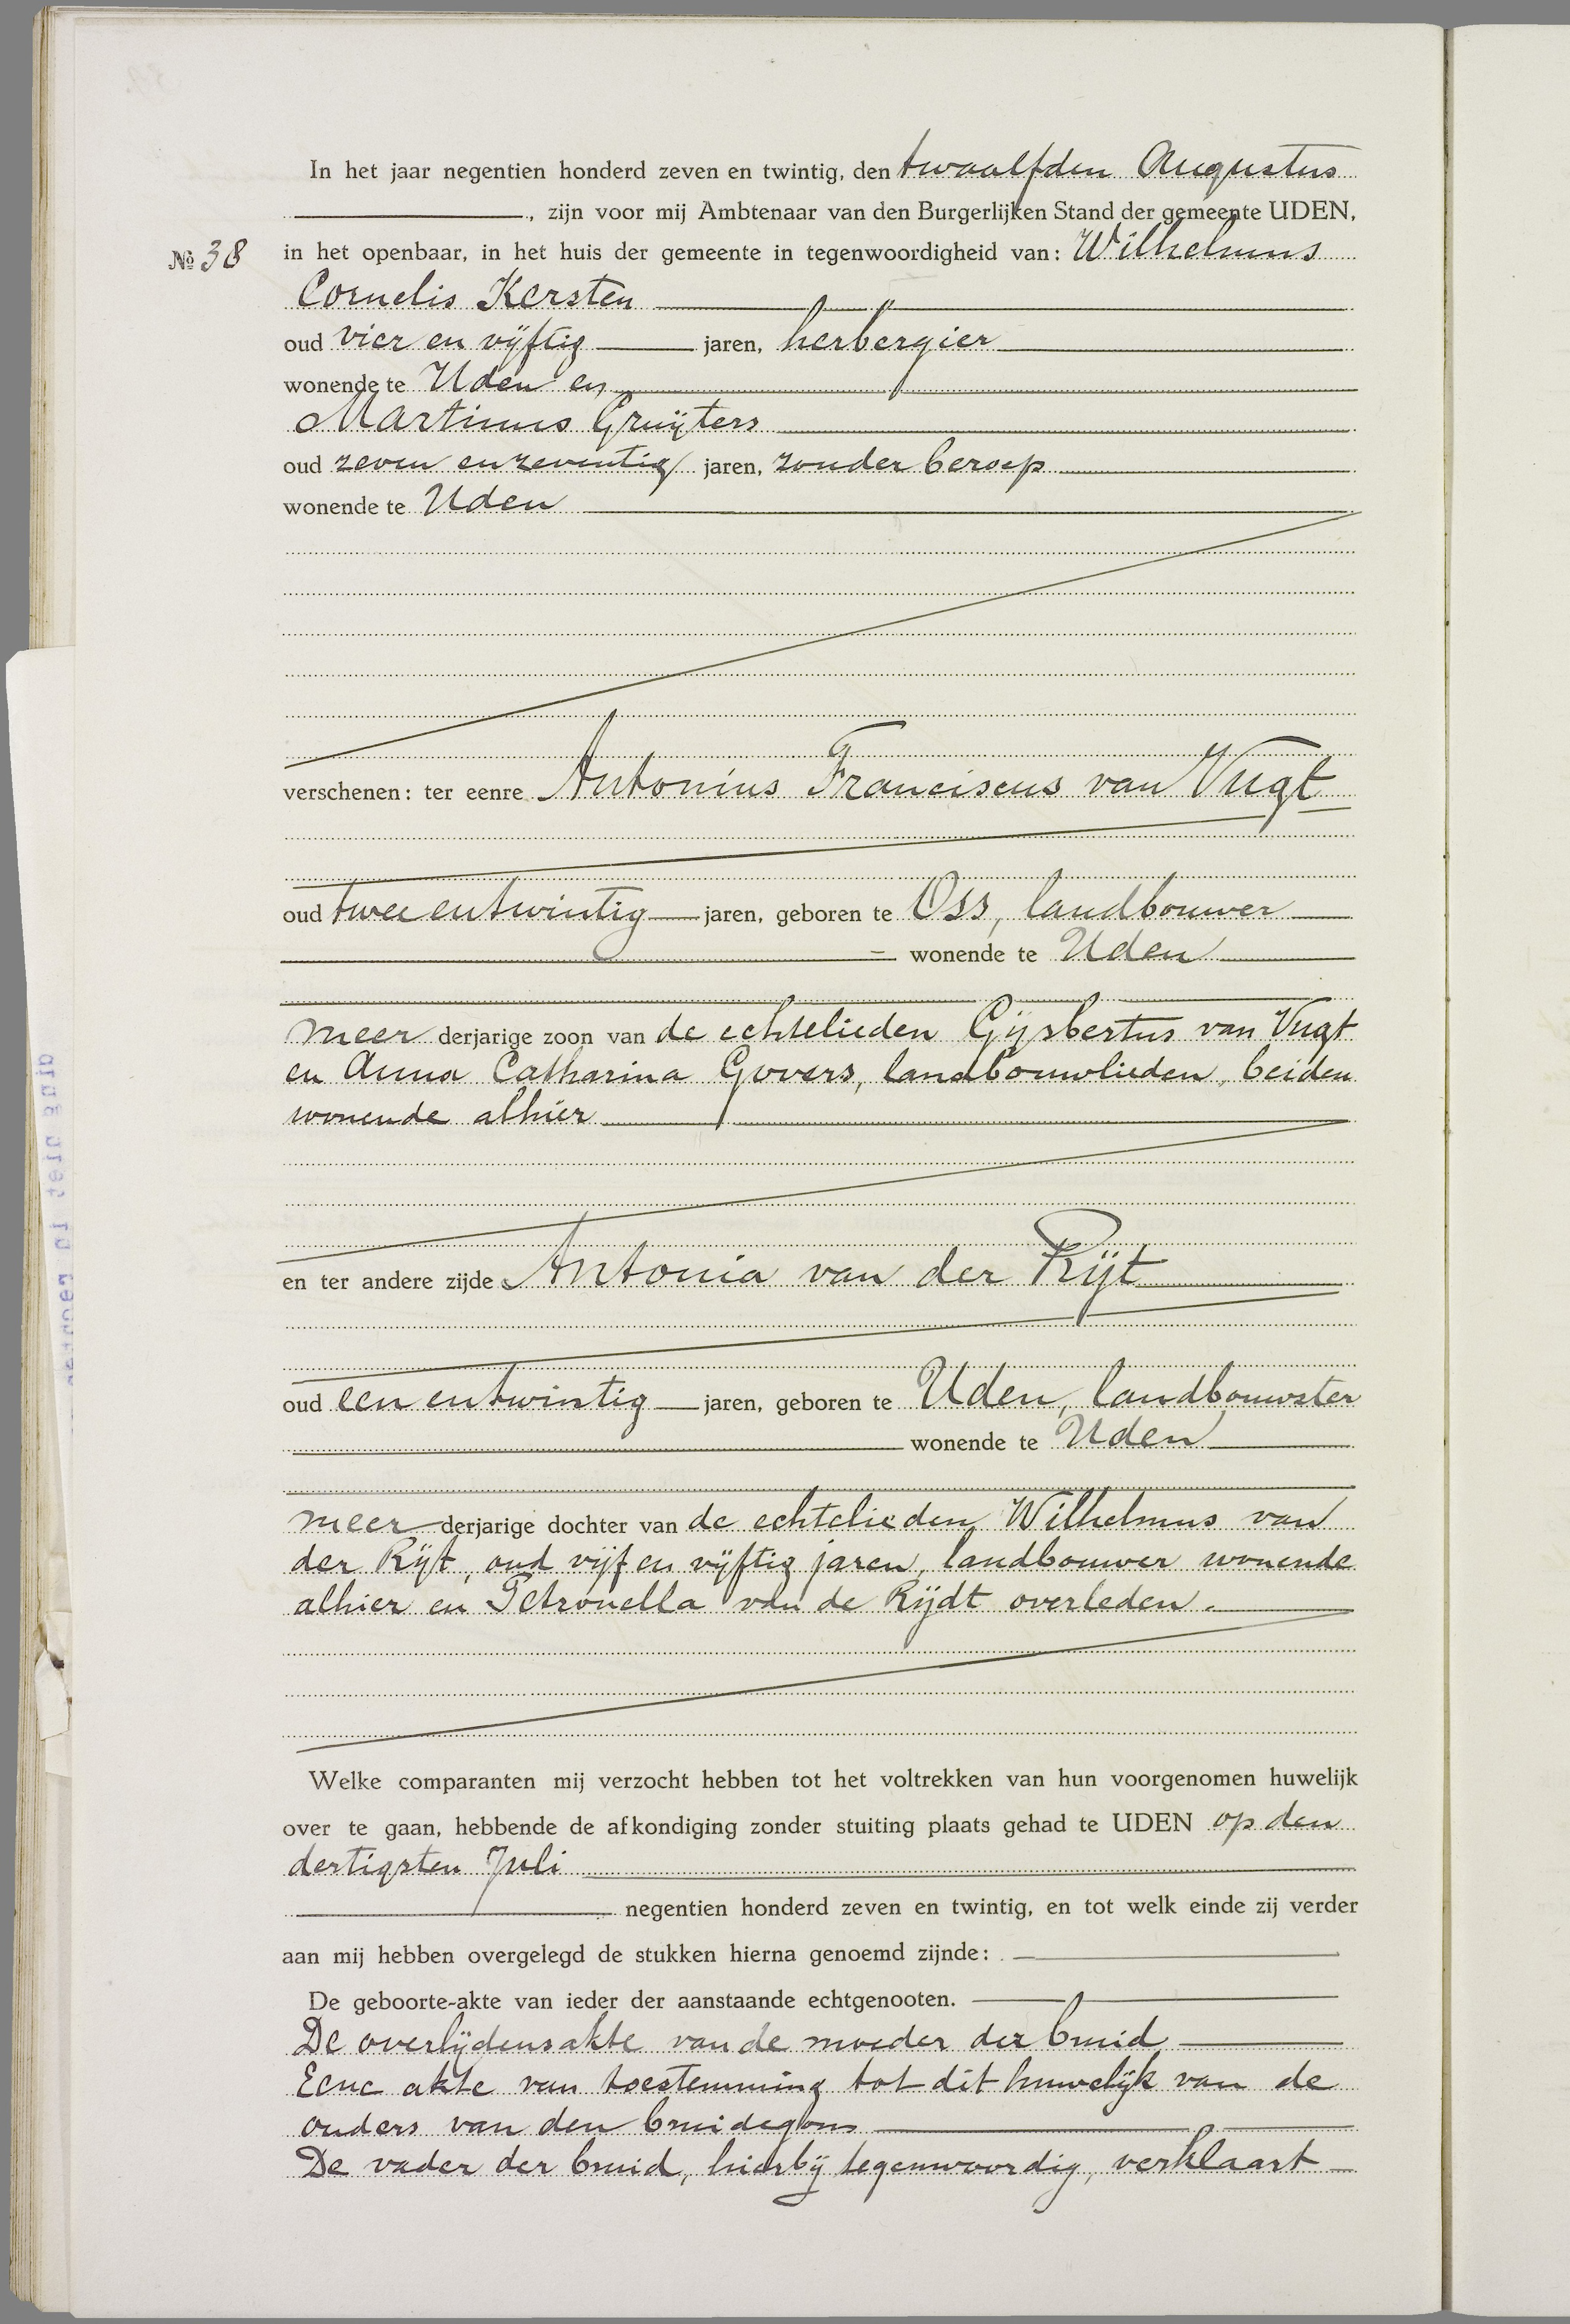 In het jaar negentien honderd zeven en twintig, den twaalfden Augustus
, zijn voor mij Ambtenaar van den Burgerlijken Stand der gemeente UDEN,
№ 38 in het openbaar, in het huis der gemeente in tegenwoordigheid van: Wilhelmus
Cornelis Kersten
oud vier en vijftig jaren, herbergier
wonende te Uden en
Martinus Gruijters
oud zeven en zeventig jaren, zonder beroep
wonende te Uden
verschenen: ter eenre Antonius Franciscus van Vugt
oud twee en twintig jaren, geboren te Oss, landbouwer
wonende te Uden
meer derjarige zoon van de echtelieden Gijsbertus van Vugt
en Anna Catharina Govers, landbouwlieden, beiden
wonende alhier
en ter andere zijde Antonia van der Rijt
oud een en twintig jaren, geboren te Uden, landbouwster
wonende te Uden
meer derjarige dochter van de echtelieden Wilhelmus van
der Rijt, oud vijf en vijftig jaren, landbouwer wonende
alhier en Petronella van de Rijdt overleden.
Welke comparanten mij verzocht hebben tot het voltrekken van hun voorgenomen huwelijk
over te gaan, hebbende de afkondiging zonder stuiting plaats gehad te UDEN op den
dertigsten Juli
negentien honderd zeven en twintig, en tot welk einde zij verder
aan mij hebben overgelegd de stukken hierna genoemd zijnde:
De geboorte-akte van ieder der aanstaande echtgenooten.
De overlijdensakte van de moeder der bruid
Eene akte van toestemming tot dit huwelijk van de
ouders van den bruidegom
De vader der bruid, hierbij tegenwoordig, verklaart